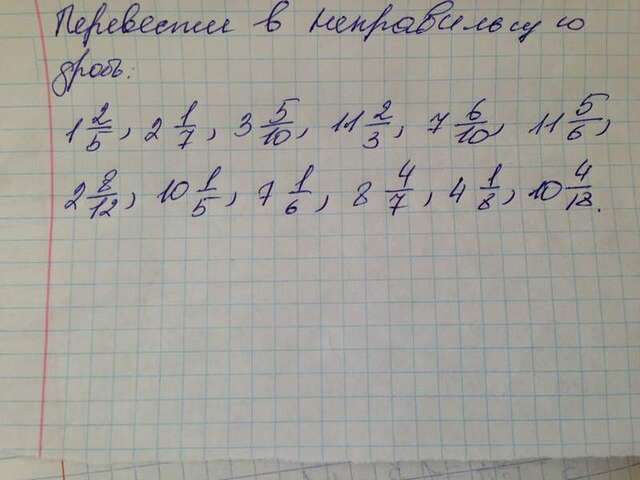 Перевести в неправильную
дробь:
1 2/5, 2 1/7, 3 5/10, 11 2/3, 7 6/10, 11 5/6,
2 8/12, 10 1/5, 7 1/6, 8 4/7, 4 1/8, 10 4/18.